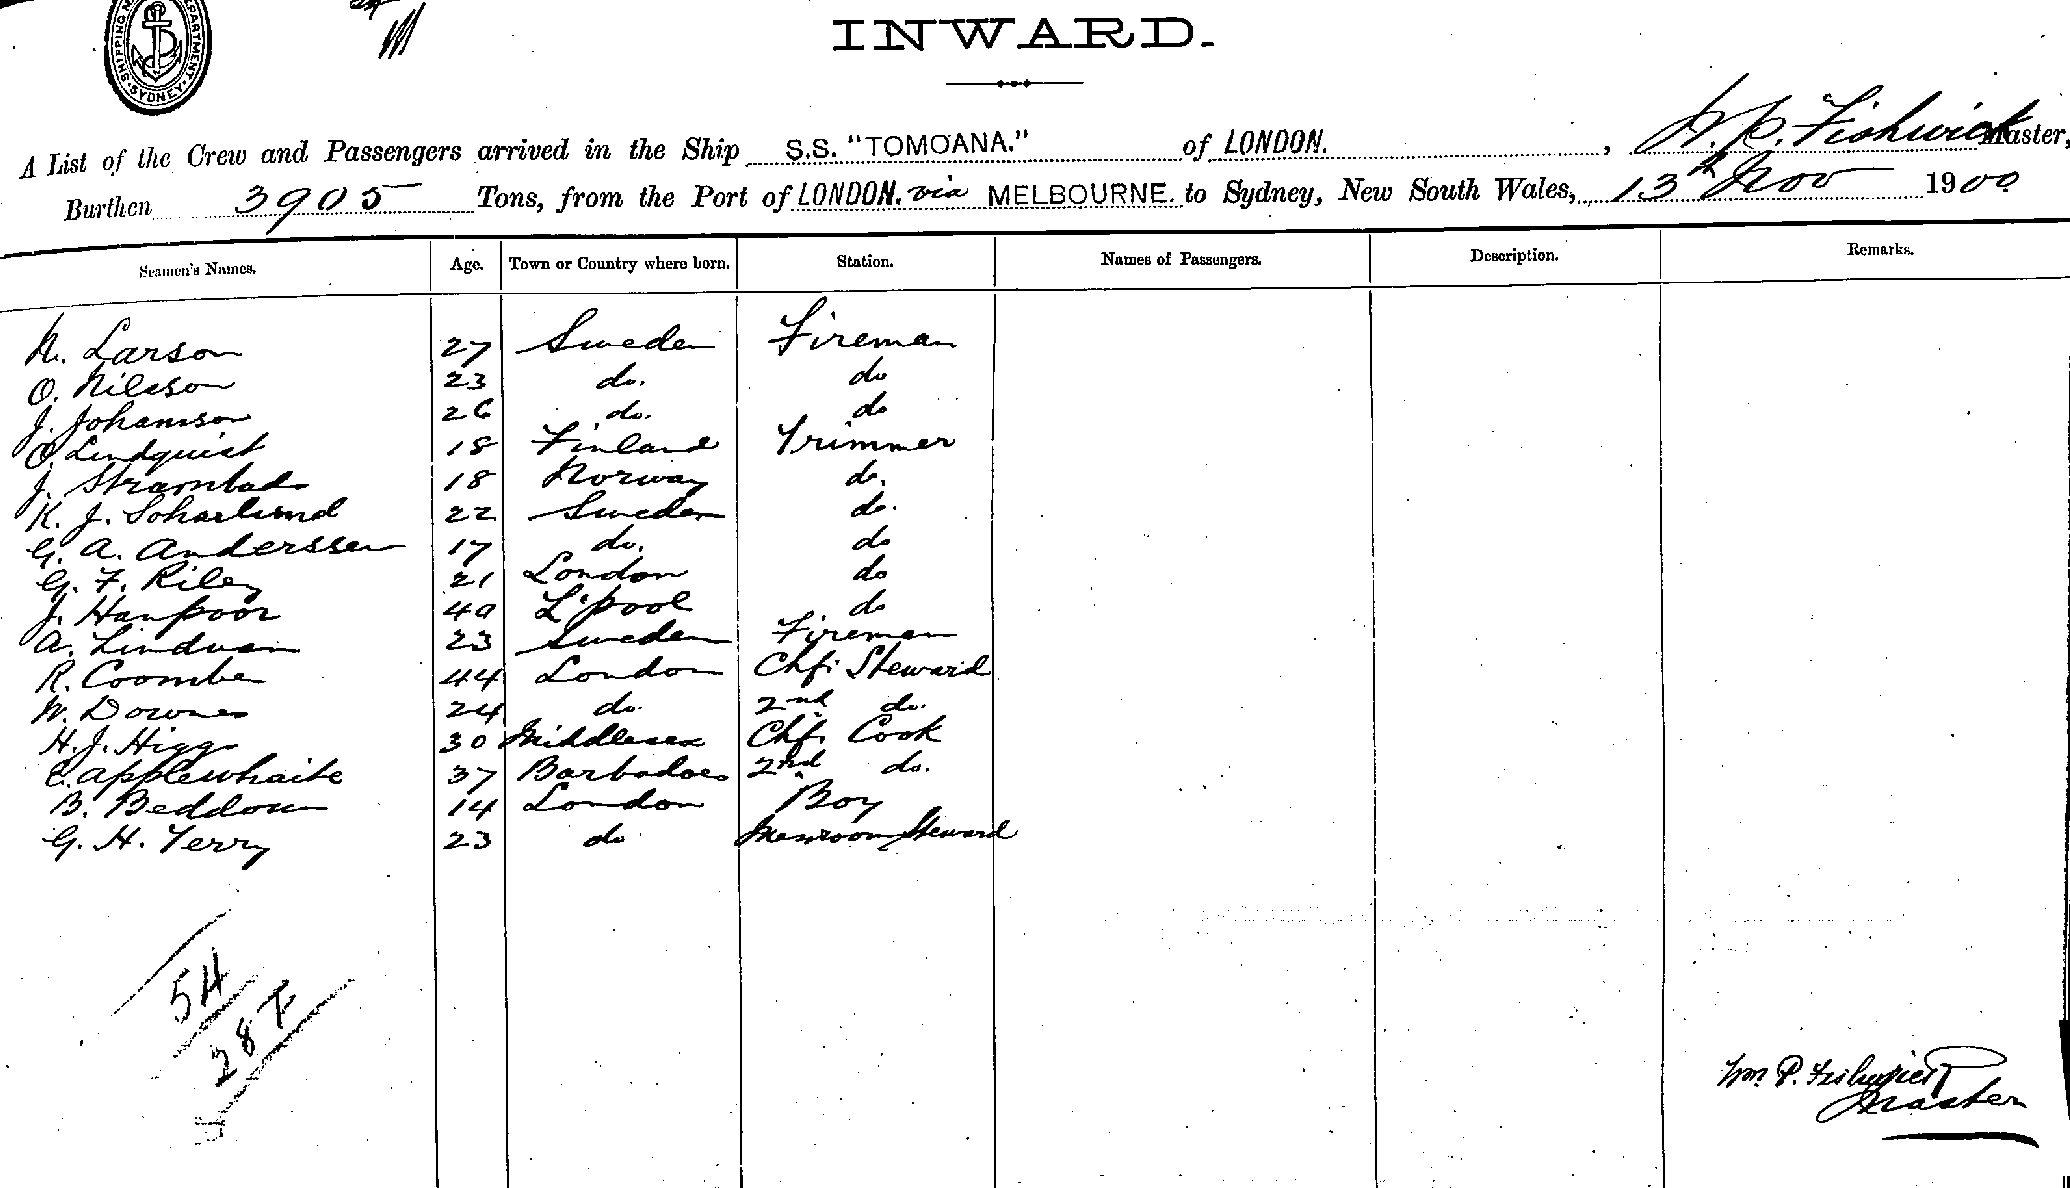 SHIPPING SYDNEY
INWARD.
A List of the Crew and Passengers arrived in the Ship S.S. "TOMOANA." of LONDON. , W. P. Fishwick Master,
Burthen 3905 Tons, from the Port of LONDON. via MELBOURNE. to Sydney, New South Wales, 13th Nov 1900
Seamen's Names. Age. Town or Country where born. Station. Names of Passengers. Description. Remarks.
N. Larson 27 Sweden Fireman
O. Nilsson 23 do. do
J. Johansson 26 do. do
O. Lindquist 18 Finland Trimmer
J. 18 Norway do.
K. J. 22 Sweden do.
G. A. Anderssen 17 do. do
G. F. Riley 21 London do
J. Hanpoor 40 L'pool do
A. 23 Sweden Fireman
R. Coombe 44 London Chf. Steward
W. Downes 24 do. 2nd do.
H. J. Higgs 30 Middlesex Chf. Cook
C. Applewhaite 37 Barbadoes 2nd do.
B. Beddow 14 London Boy
G. H. Terry 23 do Messroom Steward
54
28 F
Wm. P. Fishwick
Master